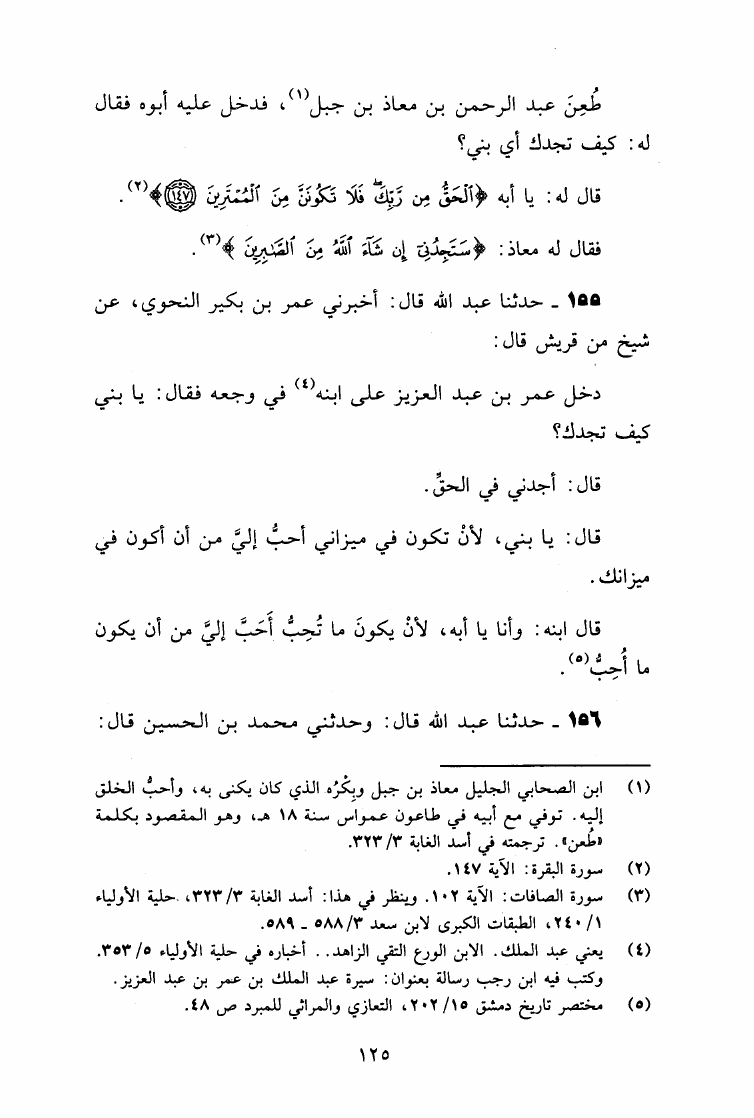 طُعِنَ عبد الرحمن بن معاذ بن جبل(١)، فدخل عليه أبوه فقال
له: كيف تجدك أي بني؟
قال له: يا أبه ﴿ٱلْحَقُّ مِن رَّبِّكَۖ فَلَا تَكُونَنَّ مِنَ ٱلْمُمْتَرِينَ ۝١٤٧﴾(٢).
فقال له معاذ: ﴿سَتَجِدُنِىٓ إِن شَآءَ ٱللَّهُ مِنَ ٱلصَّٰبِرِينَ﴾(٣).
١٥٥ ـ حدثنا عبد الله قال: أخبرني عمر بن بكير النحوي، عن
شيخ من قريش قال:
دخل عمر بن عبد العزيز على ابنه(٤) في وجعه فقال: يا بني
كيف تجدك؟
قال: أجدني في الحقِّ.
قال: يا بني، لأنْ تكون في ميزاني أحبُّ إليَّ من أن أكون في
ميزانك.
قال ابنه: وأنا يا أبه، لأنْ يكونَ ما تُحِبُّ أَحَبَّ إليَّ من أن يكون
ما أُحِبُّ(٥).
١٥٦ ـ حدثنا عبد الله قال: وحدثني محمد بن الحسين قال:
(١) ابن الصحابي الجليل معاذ بن جبل وبِكْرُه الذي كان يكنى به، وأحبُّ الخلق
إليه. توفي مع أبيه في طاعون عمواس سنة ١٨ هـ، وهو المقصود بكلمة
«طُعن». ترجمته في أسد الغابة ٣/ ٣٢٣.
(٢) سورة البقرة: الآية ١٤٧.
(٣) سورة الصافات: الآية ١٠٢. وينظر في هذا: أسد الغابة ٣/ ٣٢٣، حلية الأولياء
١/ ٢٤٠، الطبقات الكبرى لابن سعد ٣/ ٥٨٨ ـ ٥٨٩.
(٤) يعني عبد الملك. الابن الورع التقي الزاهد.. أخباره في حلية الأولياء ٥/ ٣٥٣.
وكتب فيه ابن رجب رسالة بعنوان: سيرة عبد الملك بن عمر بن عبد العزيز.
(٥) مختصر تاريخ دمشق ١٥/ ٢٠٢، التعازي والمراثي للمبرد ص ٤٨.
١٢٥